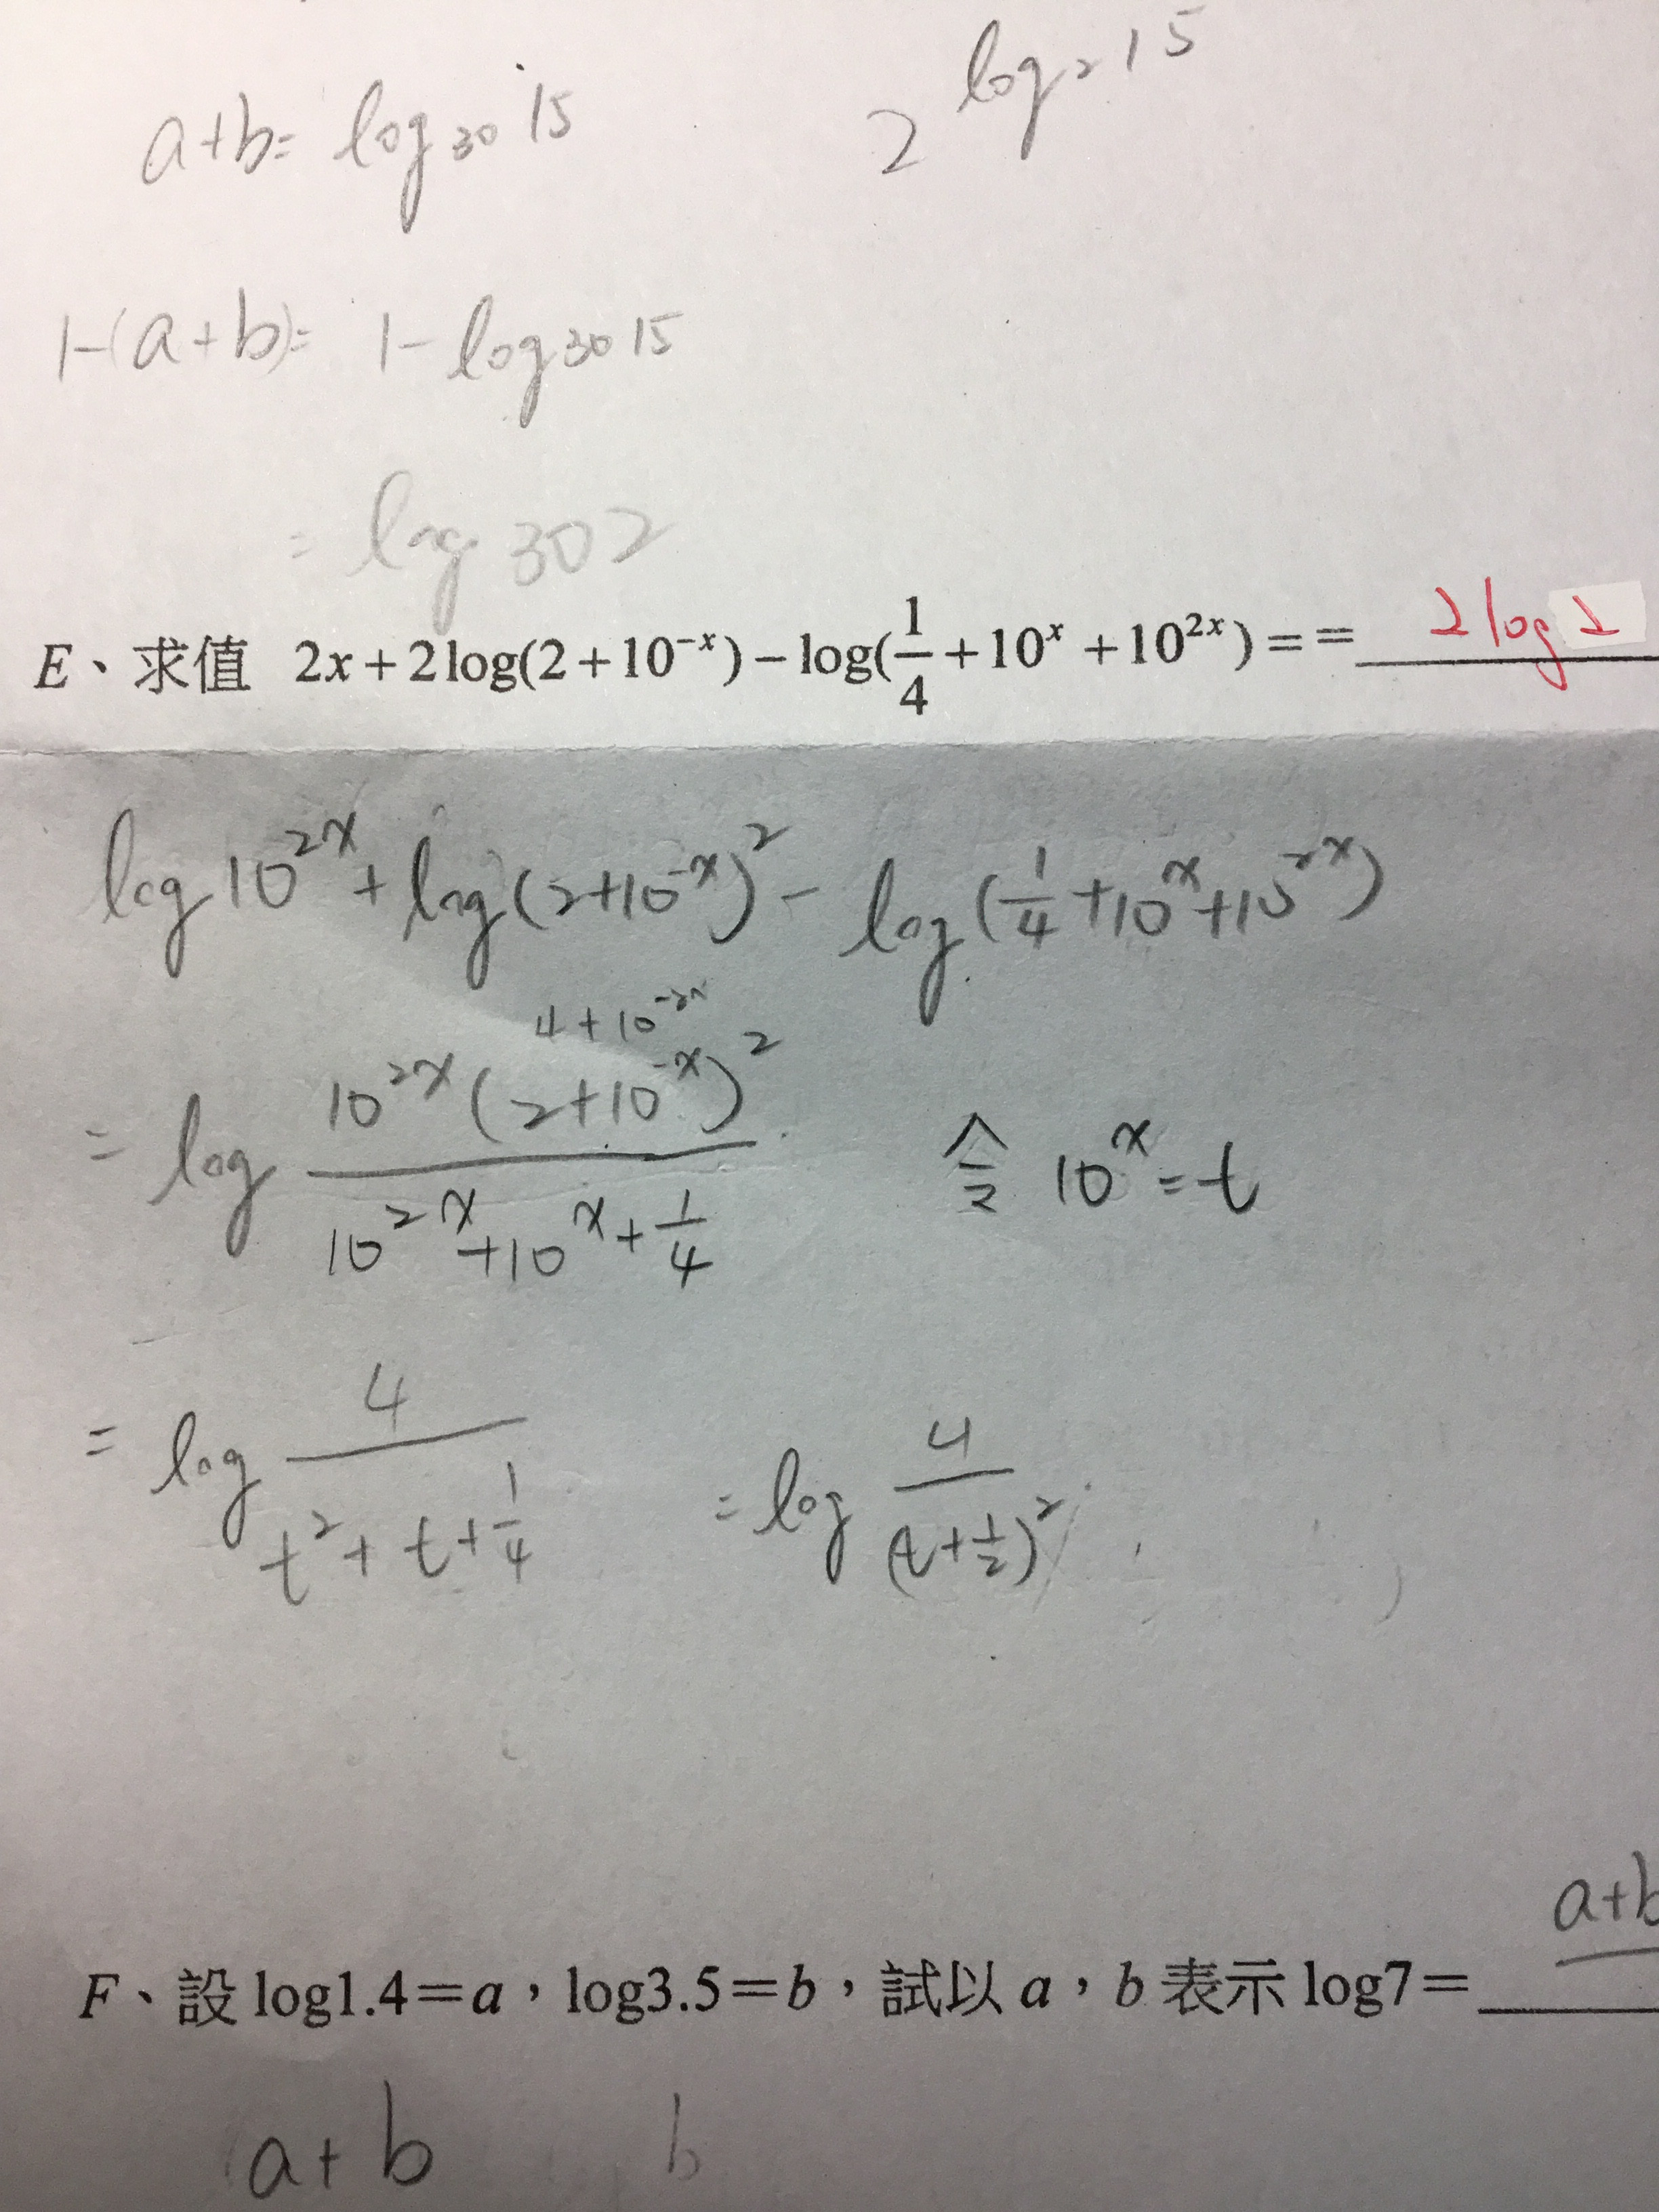 a+b= log₃₀ 15
2^{log₂ 15}
1-(a+b)= 1- log₃₀ 15
= log 30 2
E、求值 2x+2log(2+10^{-x})-log(\frac{1}{4}+10^{x}+10^{2x})== 2log2
log 10^{2x} + log(2+10^{-x})^{2} - log(\frac{1}{4}+10^{x}+10^{2x})
4+10^{-2x}
= log \frac{10^{2x}(2+10^{-x})^{2}}{10^{2x}+10^{x}+\frac{1}{4}} 令 10^{x}=t
= log \frac{4}{t^{2}+t+\frac{1}{4}} = log \frac{4}{(t+\frac{1}{2})^{2}}
a+b
F、設 log1.4=a,log3.5=b,試以 a,b 表示 log7=
a+b b